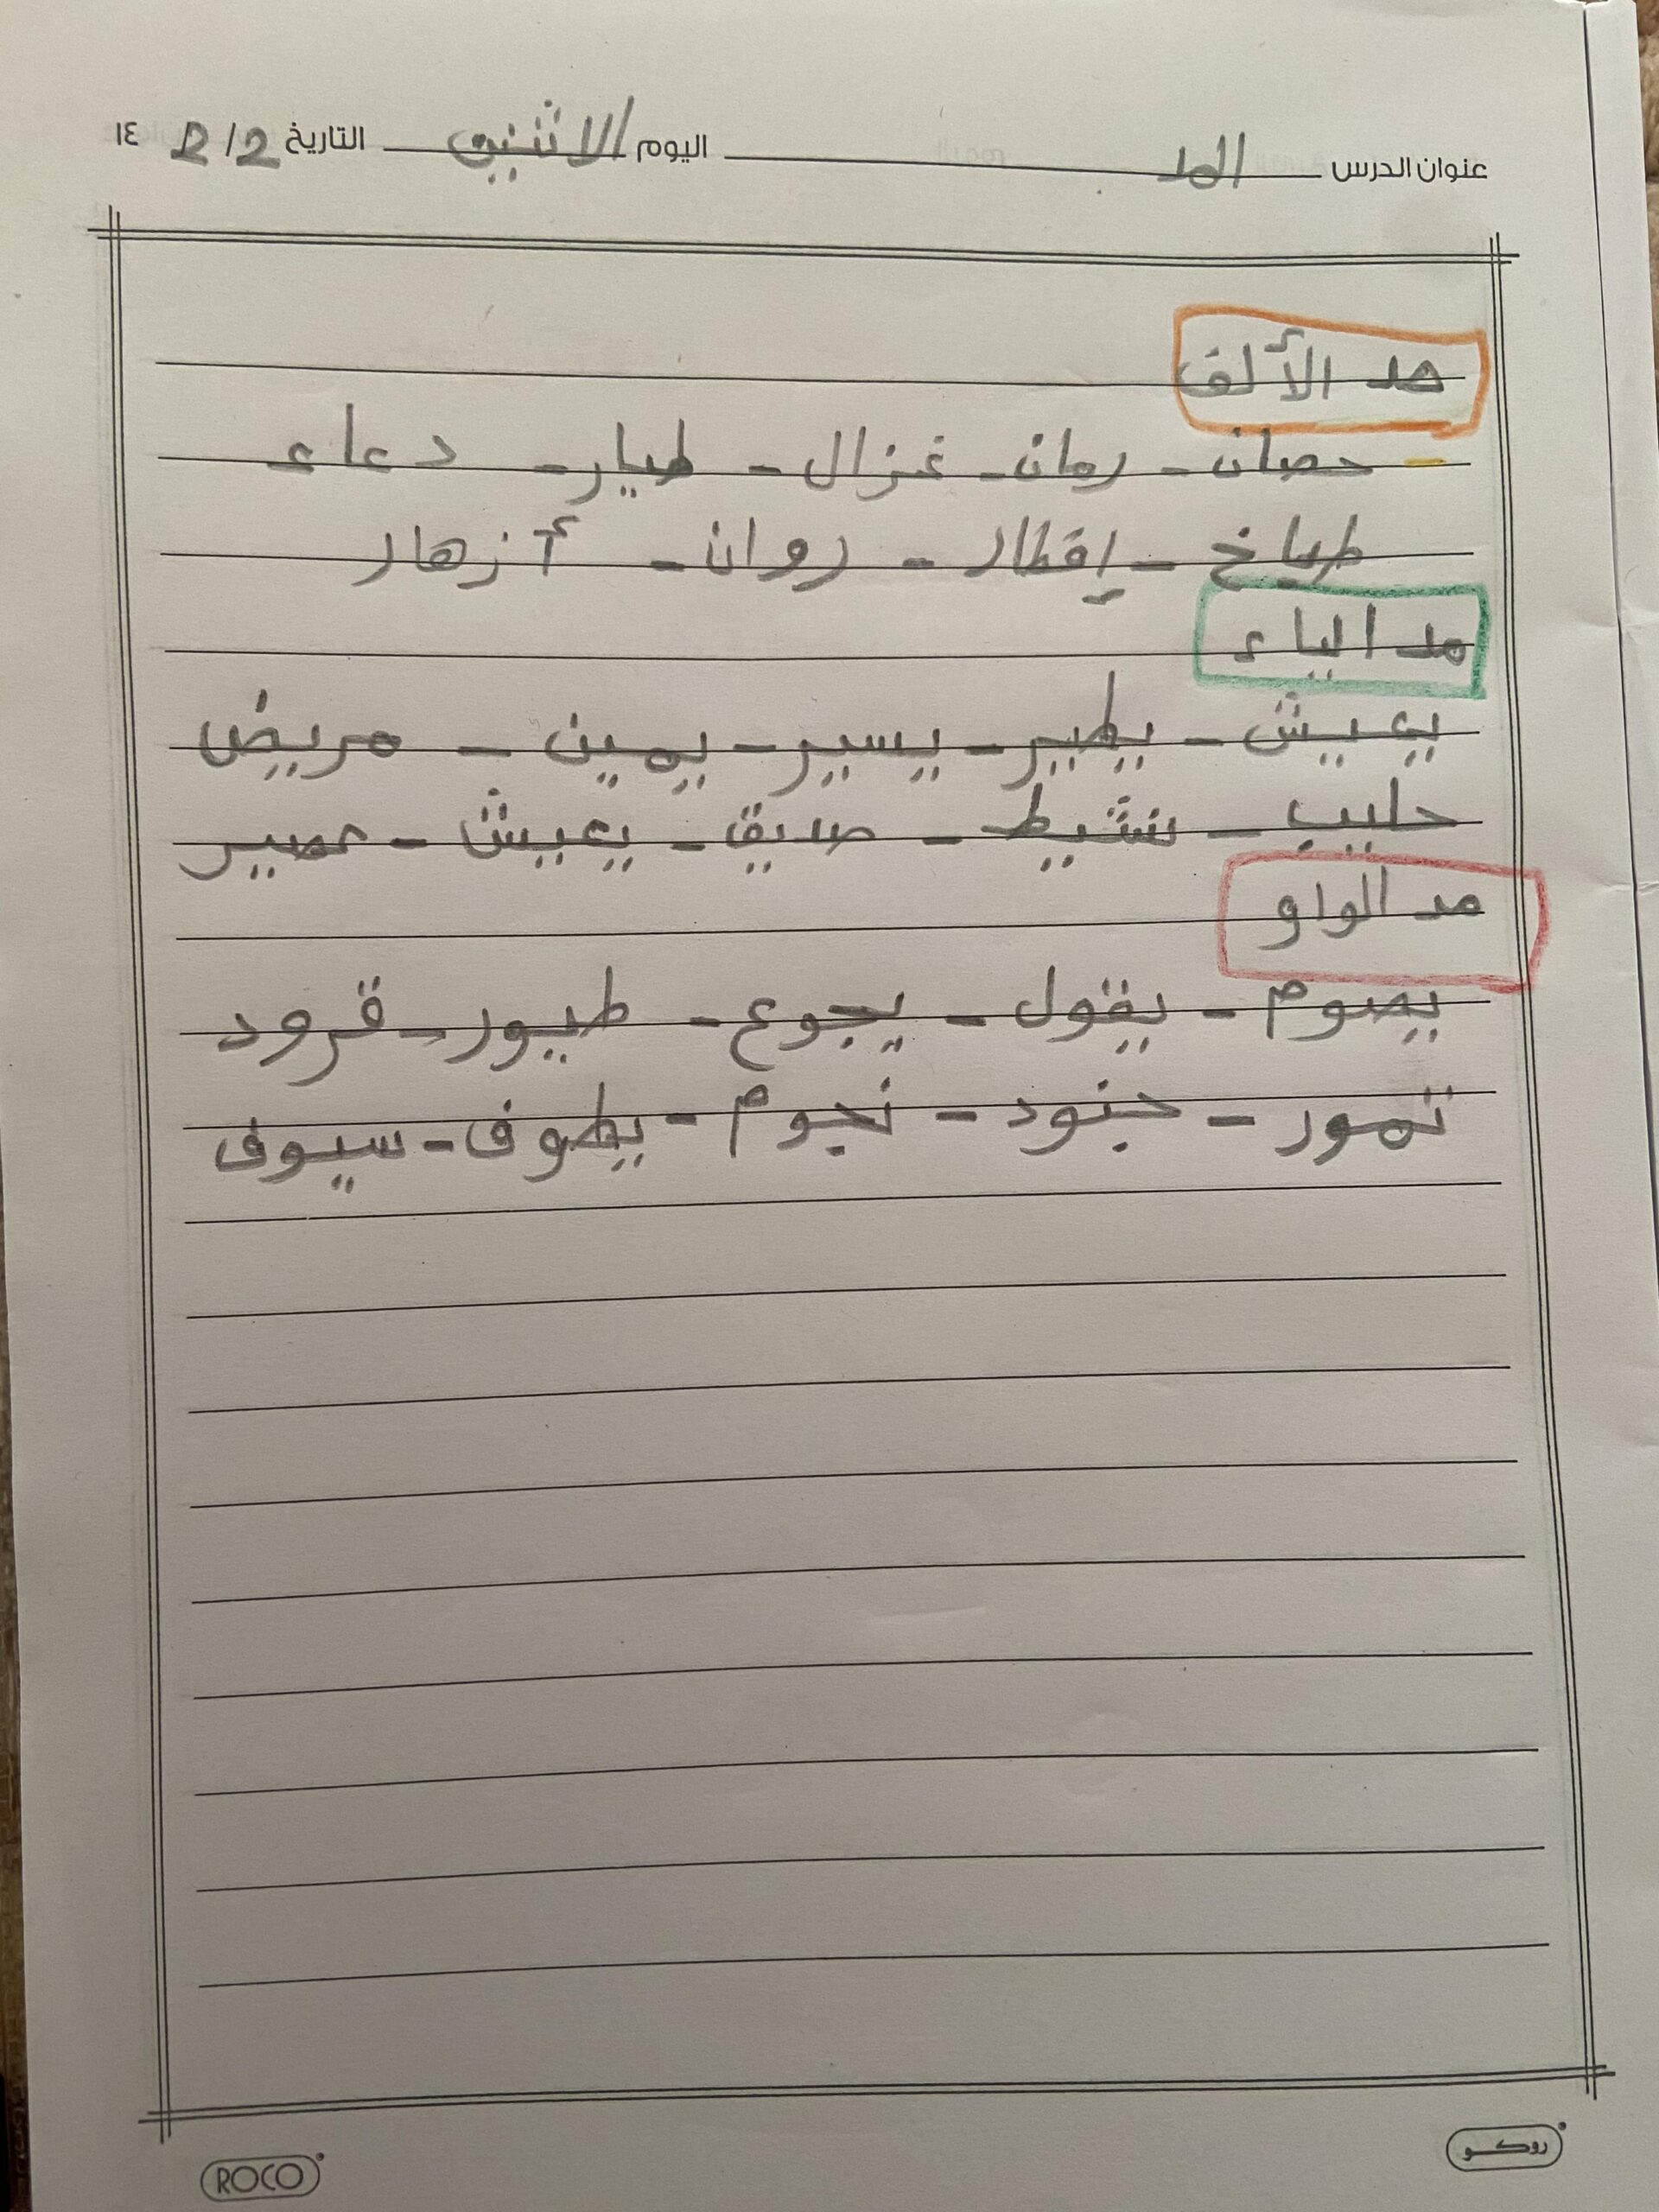 عنوان الدرس المد اليوم الاثنين التاريخ 2/2 ١٤
مد الألف
حصان - رمان - غزال - طيار - دعاء
طباخ - إقطار - روان - أزهار
مد الياء
يعيش - يطير - يسير - يمين - مريض
حليب - نشيط - صديق - يعيش - عصير
مد الواو
يصوم - يقول - يجوع - طيور - قرود
نمور - جنود - نجوم - يطوف - سيوف
ROCO روكو